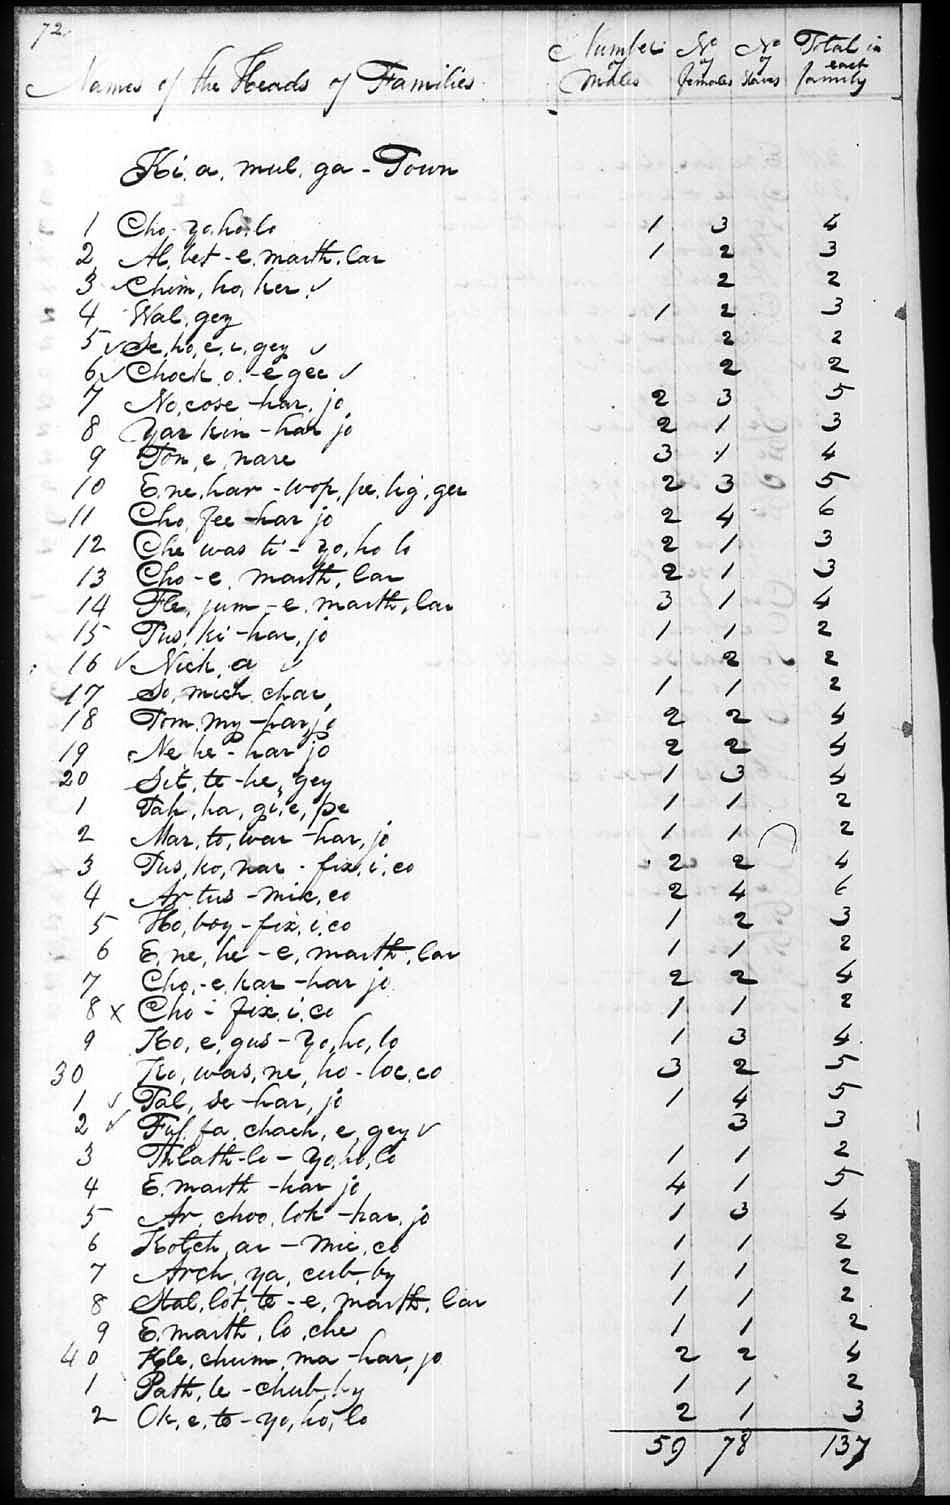 72
Names of the Heads of Families Number of Males No of females No of Slaves Total in each family
Ki, a, mul, ga - Town
1 Cho, yo, ho, lo 1 3 4
2 Al, bet - e, marth, lar 1 2 3
3 ✓ Chim, ho, ker, ✓ 2 2
4 Wal, gey 1 2 3
5 ✓ Se, ho, e, i, gey ✓ 2 2
6 ✓ Chock, o, - e gee ✓ 2 2
7 No, cose - har, jo 2 3 5
8 Yar kin - har jo 2 1 3
9 Ton, e, nare 3 1 4
10 E, ne, har - wop, pe, hig, gee 2 3 5
11 Cho, fee - har jo 2 4 6
12 Che was ti - yo, ho lo 2 1 3
13 Cho - e, marth, lar 2 1 3
14 Fle, jum - e, marth, lar 3 1 4
15 Tus, ki - har, jo 1 1 2
16 ✓ Nick, a ✓ 2 2
17 So, mich, char, 1 1 2
18 Tom, my - har, jo 2 2 4
19 Ne he - har jo 2 2 4
20 Sit, te - he, gey 1 3 4
1 Tah, ha, gi, e, pe 1 1 2
2 Mar, to, war - har, jo 1 1 2
3 Tus, ko, nar - fix, i, co 2 2 4
4 Ar, tus - mic, co 2 4 6
5 Ho, boy - fix, i, co 1 2 3
6 E, ne, he - e, marth, lar 1 1 2
7 Cho, - e, kar - har jo 2 2 4
8 x Cho - fix, i, co 1 1 2
9 Ko, e, gus - yo, ho, lo 1 3 4
30 Ko, was, ne, ho - loc, co 3 2 5
1 ✓ Tal, se - har, jo 1 4 5
2 ✓ Ful, fa, chach, e, gey ✓ 3 3
3 Thlath - lo - yo, ho, lo 1 1 2
4 E, marth - har jo 4 1 5
5 Ar, choo, lok - har, jo 1 3 4
6 Kotch, ar - mic, co 1 1 2
7 Arch, ya, cub, by 1 1 2
8 Stal, lot, te - e, marth, lar 1 1 2
9 E, marth, lo, che 1 1 2
40 Kle, chum, ma - har, jo 2 2 4
1 Path, le - chub, by 1 1 2
2 Ok, e, te - yo, ho, lo 2 1 3
59 78 137